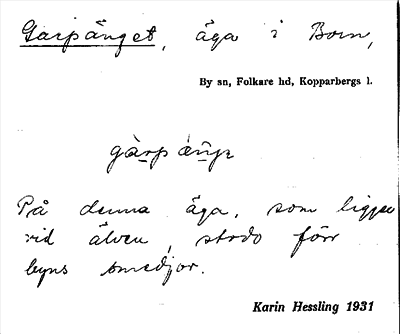 Garpänget, äga i Born,
By sn, Folkare hd, Kopparbergs l.
På denna äga, som ligger
vid älven, stodo förr
byns smedjor.
Karin Hessling 1931